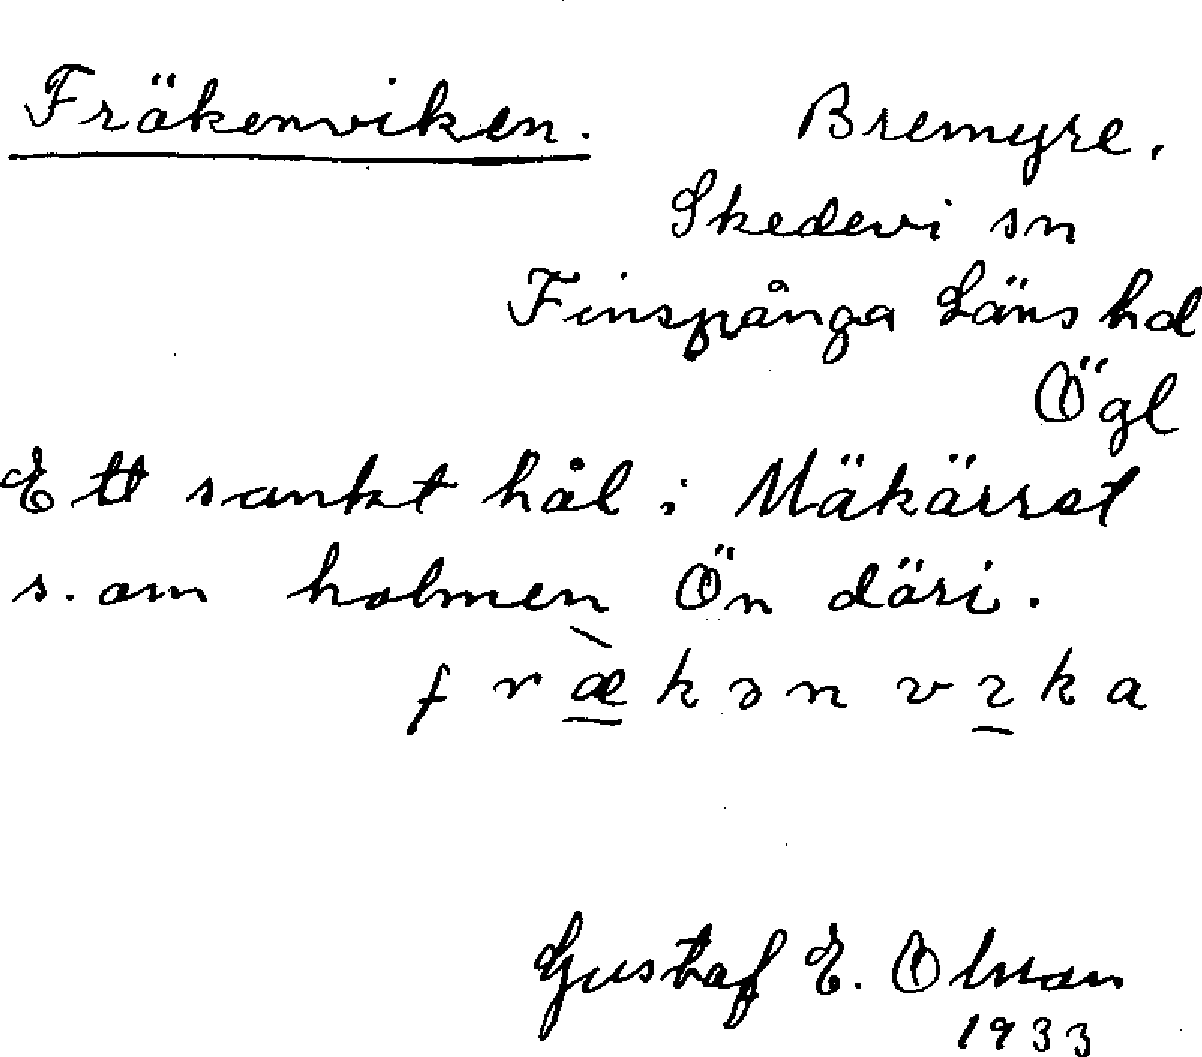 Fräkenviken. Bremyre,
Skedevi sn
Finspånga Läns hd
Ögl
Ett sankt hål i Mäkärret
s. om holmen Ön däri.
fræ̀kənvıka
Gustaf E. Olsson
1933